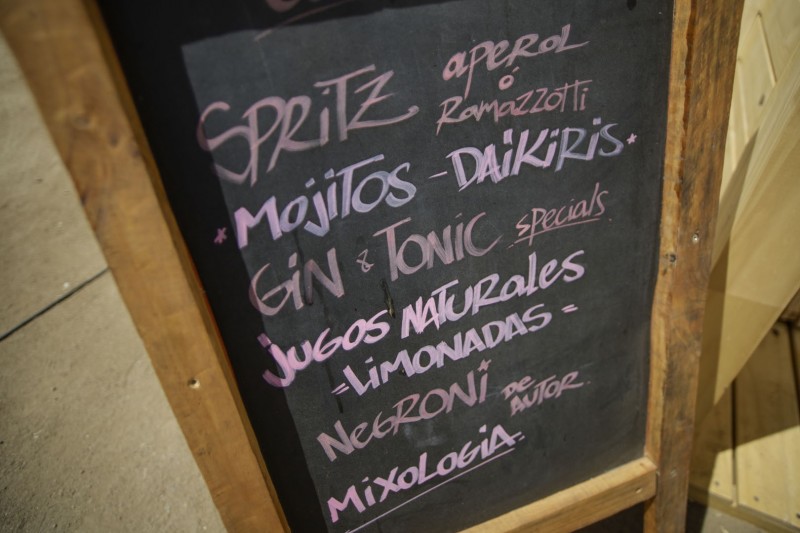 SPRITZ APEROL
Ó
RAMAZZOTTI
*MOJITOS - DAIKIRIS*
GIN & TONIC specials
JUGOS NATURALES
=LIMONADAS=
NEGRONI DE AUTOR
MIXOLOGIA